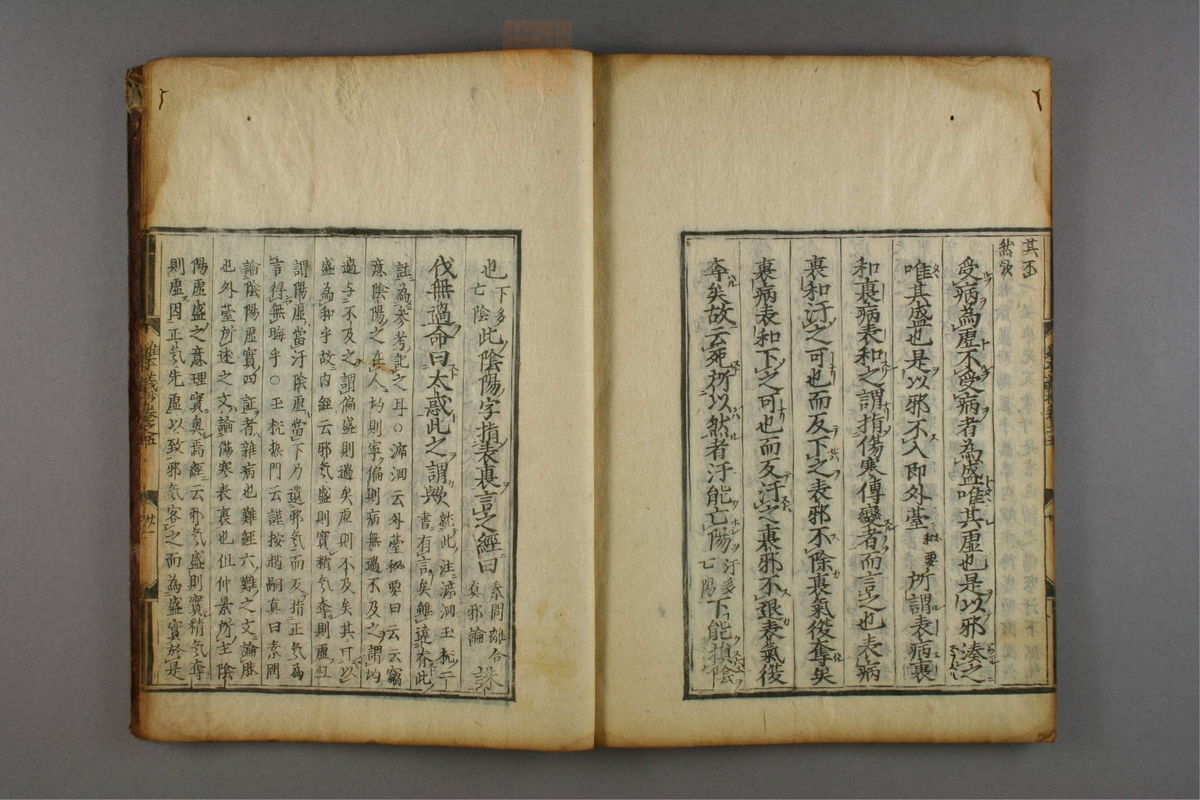 其不
然欤
受病為虛不受病者為盛唯其虛也是以邪湊之
唯其盛也是以邪不入即外臺秘要所謂表病裏
和裏病表和之謂指傷寒傳變者而言之也表病
裏和汗之可也而反下之表邪不除裏氣後奪矣
裏病表和下之可也而反汗之裏邪不退表氣後
奪矣故云死所以然者汗能亡陽汗多亡陽下能損陰
也下多亡陰此陰陽字指表裏言之經曰素問離合真邪論誅
伐無過命曰太惑此之謂歟就此注滎洄王柷二書有言矣雖遶有此
註為參考記之耳○滎洄云外臺秘要曰云云竊
意陰陽之在人均則寧偏則病無過不及之謂均
過与不及之謂偏盛則過矣虛則不及矣其可以
盛為和乎故内經云邪气盛則實精气奪則虛且
謂陽虛當汗陰虛當下乃遺邪气而反指正气為
言得無晦乎○王柷熱門云謹按趙嗣真曰素問
論陰陽虛實四証者雜病也難經六難之文論脉
也外臺所述之文論傷寒表裏也但仲景所主陰
陽虛盛之意理實奥焉經云邪气盛則實精气奪
則虛因正气先虛以致邪气客之而為盛實於是